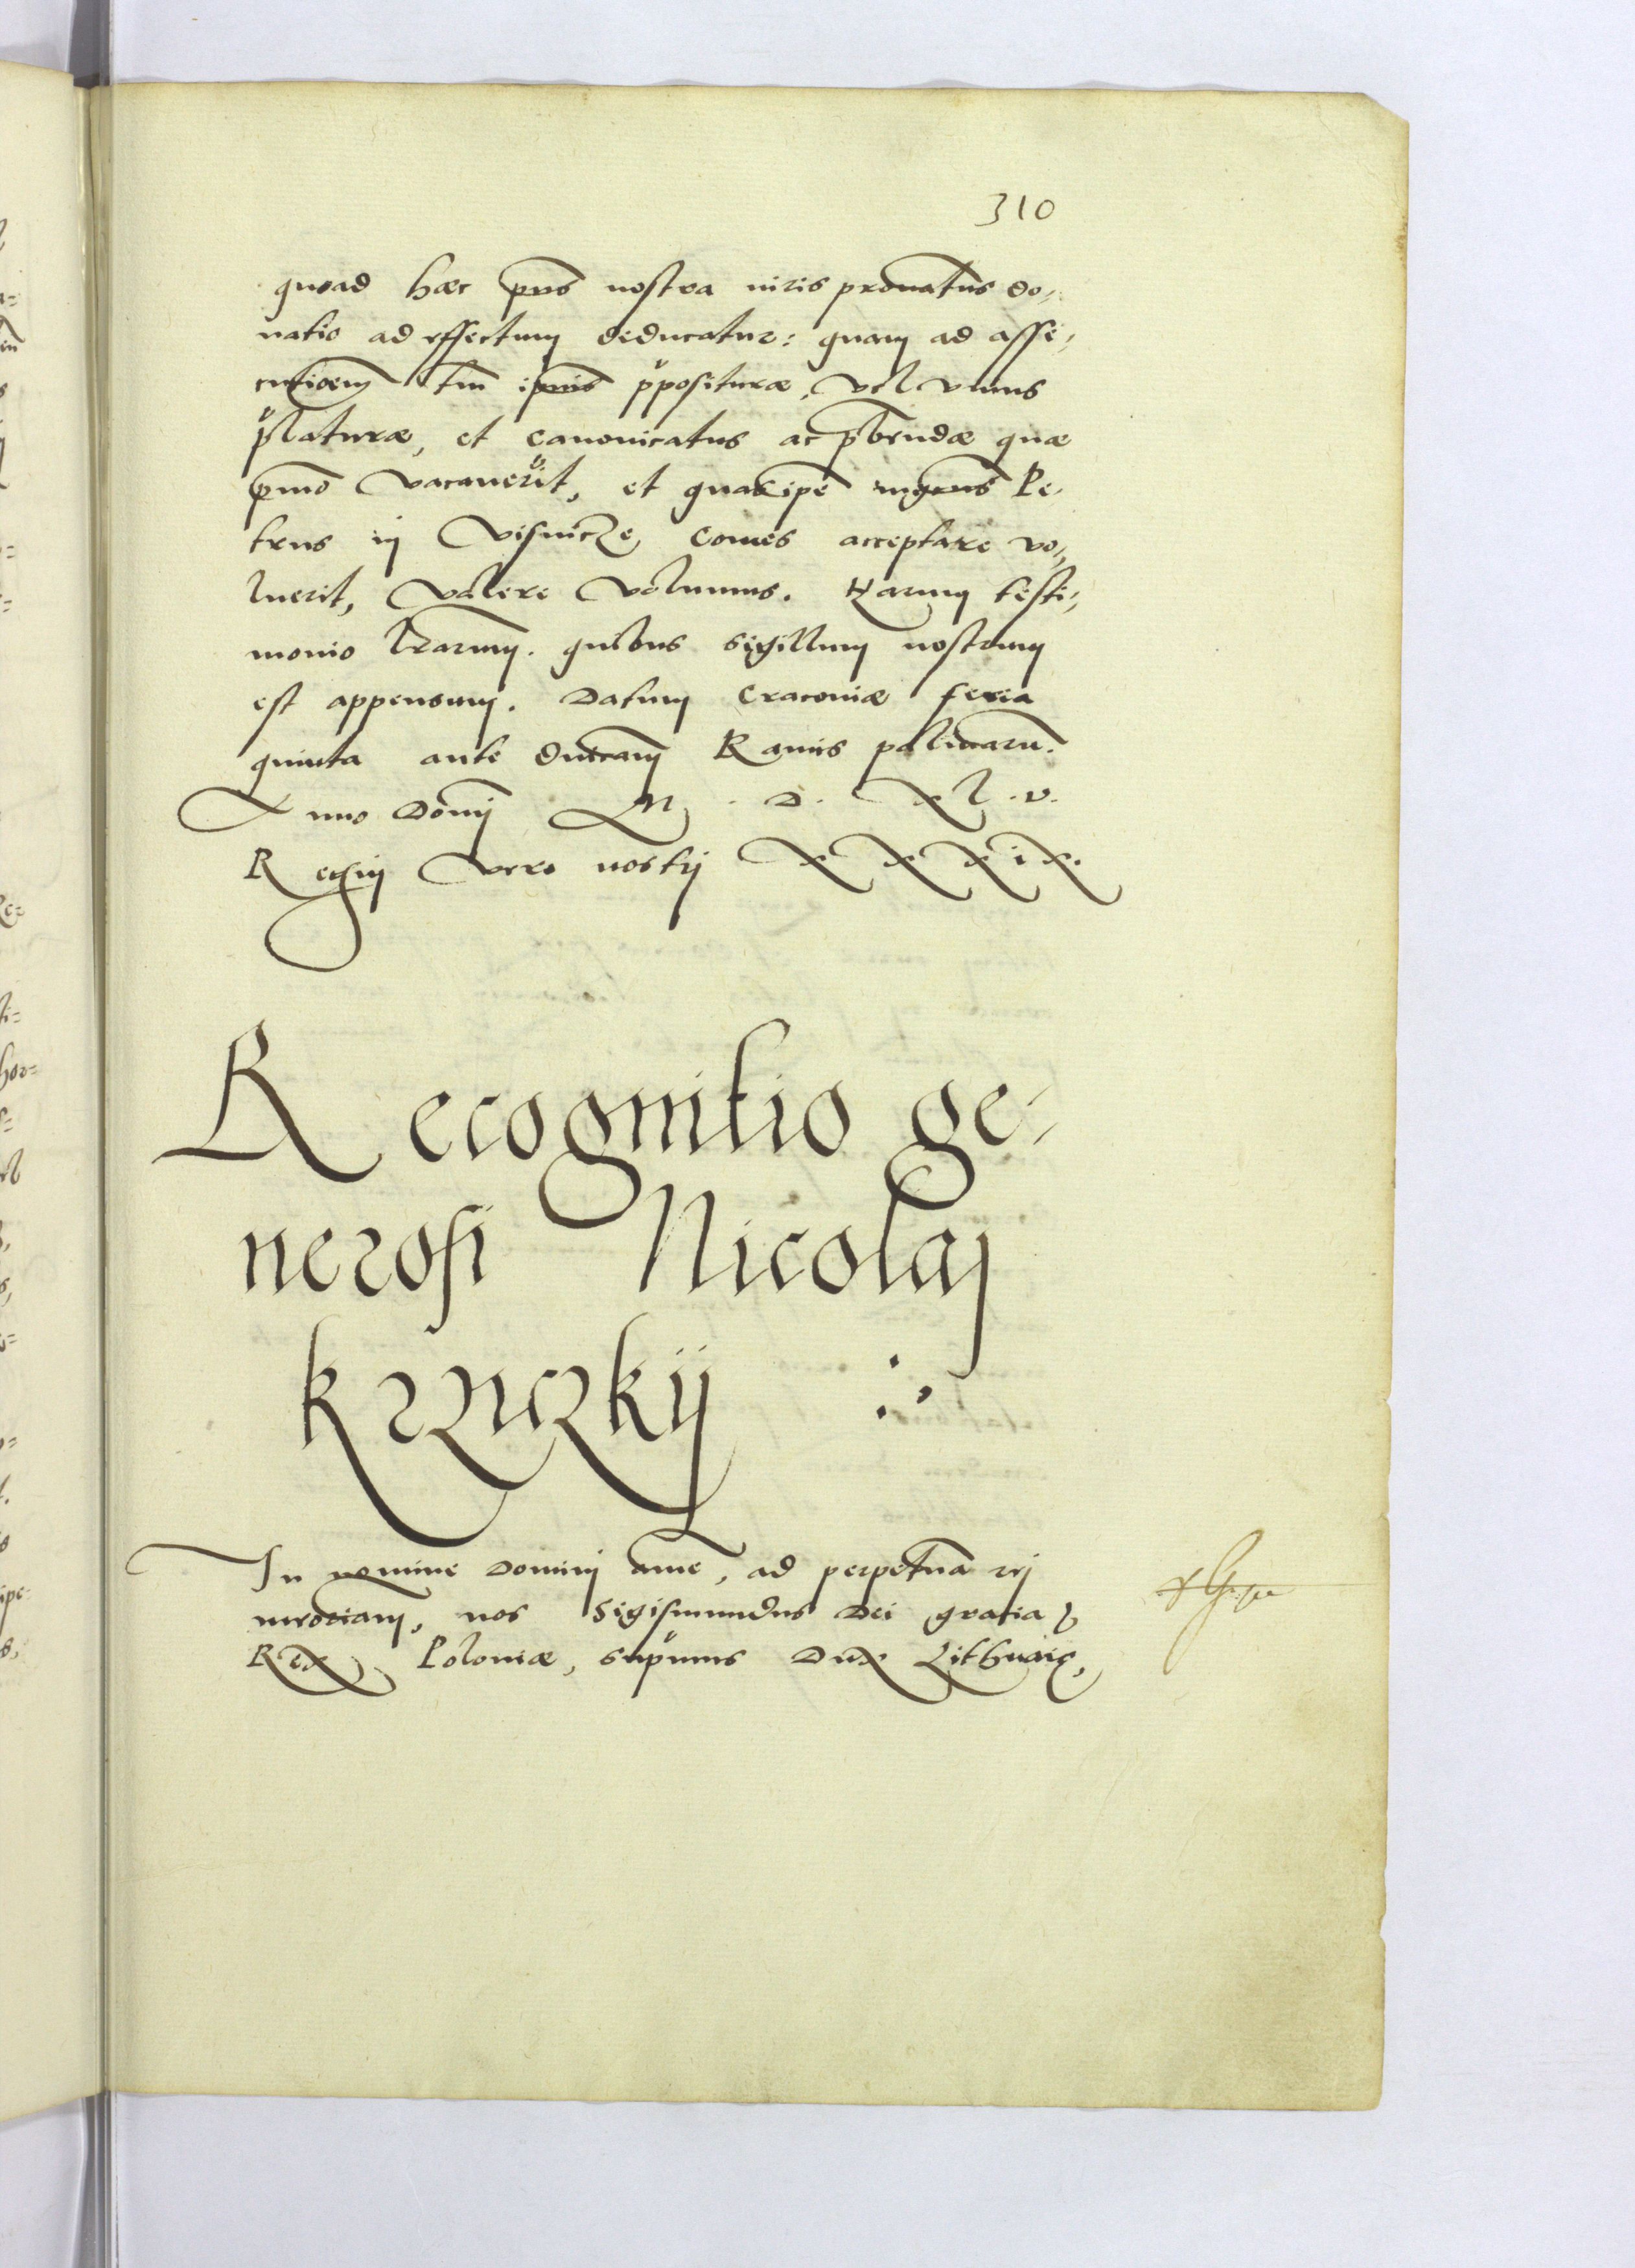 310
quoad hæc pñs nostra iuris pronatus do-
natio ad effectum deducatur: quam ad asse-
cutioem tm̄ ipsius p̄positurae, vel unius
p̄laturæ, et canonicatus ac p̄bendæ quæ
pmo vacauerit, et quas ipe mgcus Pe-
trus in Visnicze Comes acceptare vo-
luerit, valere volumus. Harum testi-
monio lrarum. quibus sigillum nostrum
est appensum. Datum Cracoviæ feria
quinta ante dnicam Ramis palmaru.
Anno Domj M. D. Xl. v.
Regnj vero nostrj XXXiX.
Recognitio ge-
nerosi Nicolaj
Krzuczkij
In nomine Dominj ame, ad perpetua rej
memoriam, nos Sigismundus Dei gratia
Rex Poloniæ, supmus Dux Lithuaię,